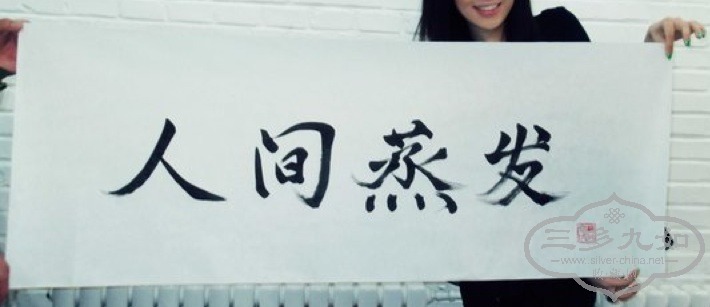 人间蒸发
三多九如
www.silver-china.net